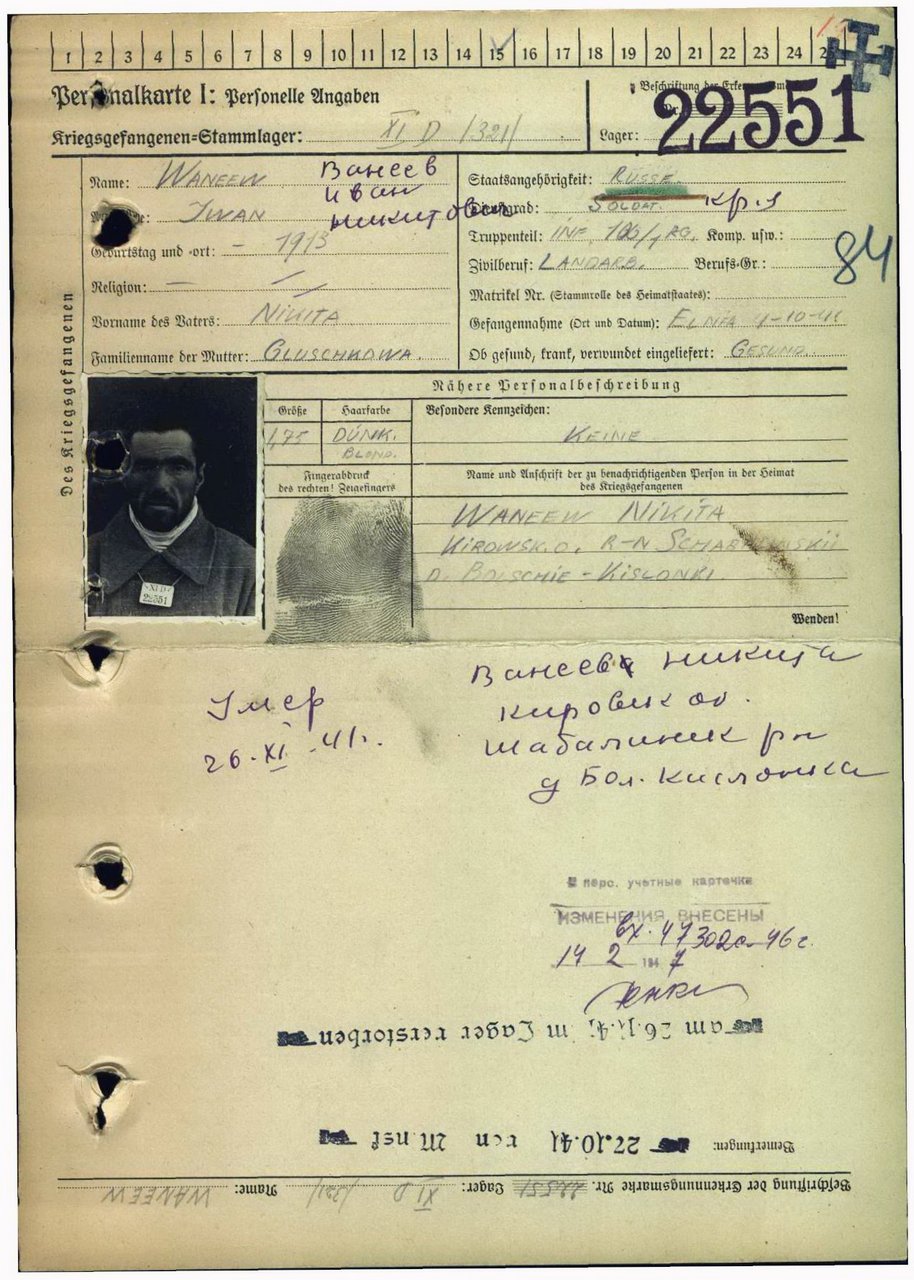 1 2 3 4 5 6 7 8 9 10 11 12 13 14 15 16 17 18 19 20 21 22 23 24
Personalkarte I: Personelle Angaben
Beschriftung der
22551
Kriegsgefangenen=Stammlager: XI D /321/
Lager:
Name: WANEEW
Ванеев
Иван
Никитович
IWAN
Geburtstag und =ort: – 1913
Religion: —
Vorname des Vaters: NIKITA
Familienname der Mutter: GLUSCHKOWA.
Staatsangehörigkeit: RUSSE
Dienstgrad: SOLDAT. кр.
Truppenteil: INF. Komp. usw.:
84
Zivilberuf: LANDARB. Berufs=Gr.:
Matrikel Nr. (Stammrolle des Heimatstaates):
Gefangennahme (Ort und Datum): ELNIA 4-10-41
Ob gesund, krank, verwundet eingeliefert: GESUND.
Des Kriegsgefangenen
Nähere Personalbeschreibung
Größe
Haarfarbe
Besondere Kennzeichen:
1,75
DUNK.
BLOND.
KEINE
Fingerabdruck
des rechten! Zeigefingers
Name und Anschrift der zu benachrichtigenden Person in der Heimat
des Kriegsgefangenen
WANEEW NIKITA
KIROWSK. O. R-N
D. BOLSCHIE-KISLONKI
XI D
22551
Wenden!
Умер
26.XI.41г.
Ванеев Никита
Шабалинск р-н
д Бол. Кислонка
перс. учетные карточки
ИЗМЕНЕНИЯ ВНЕСЕНЫ
вх. 47302с-46г.
14 2 1947
am 26.11.41 im Lager verstorben
Bemerkungen: 27.10.41 von
Beschriftung der Erkennungsmarke Nr. 22551 Lager: XI D /321/ Name: WANEEW